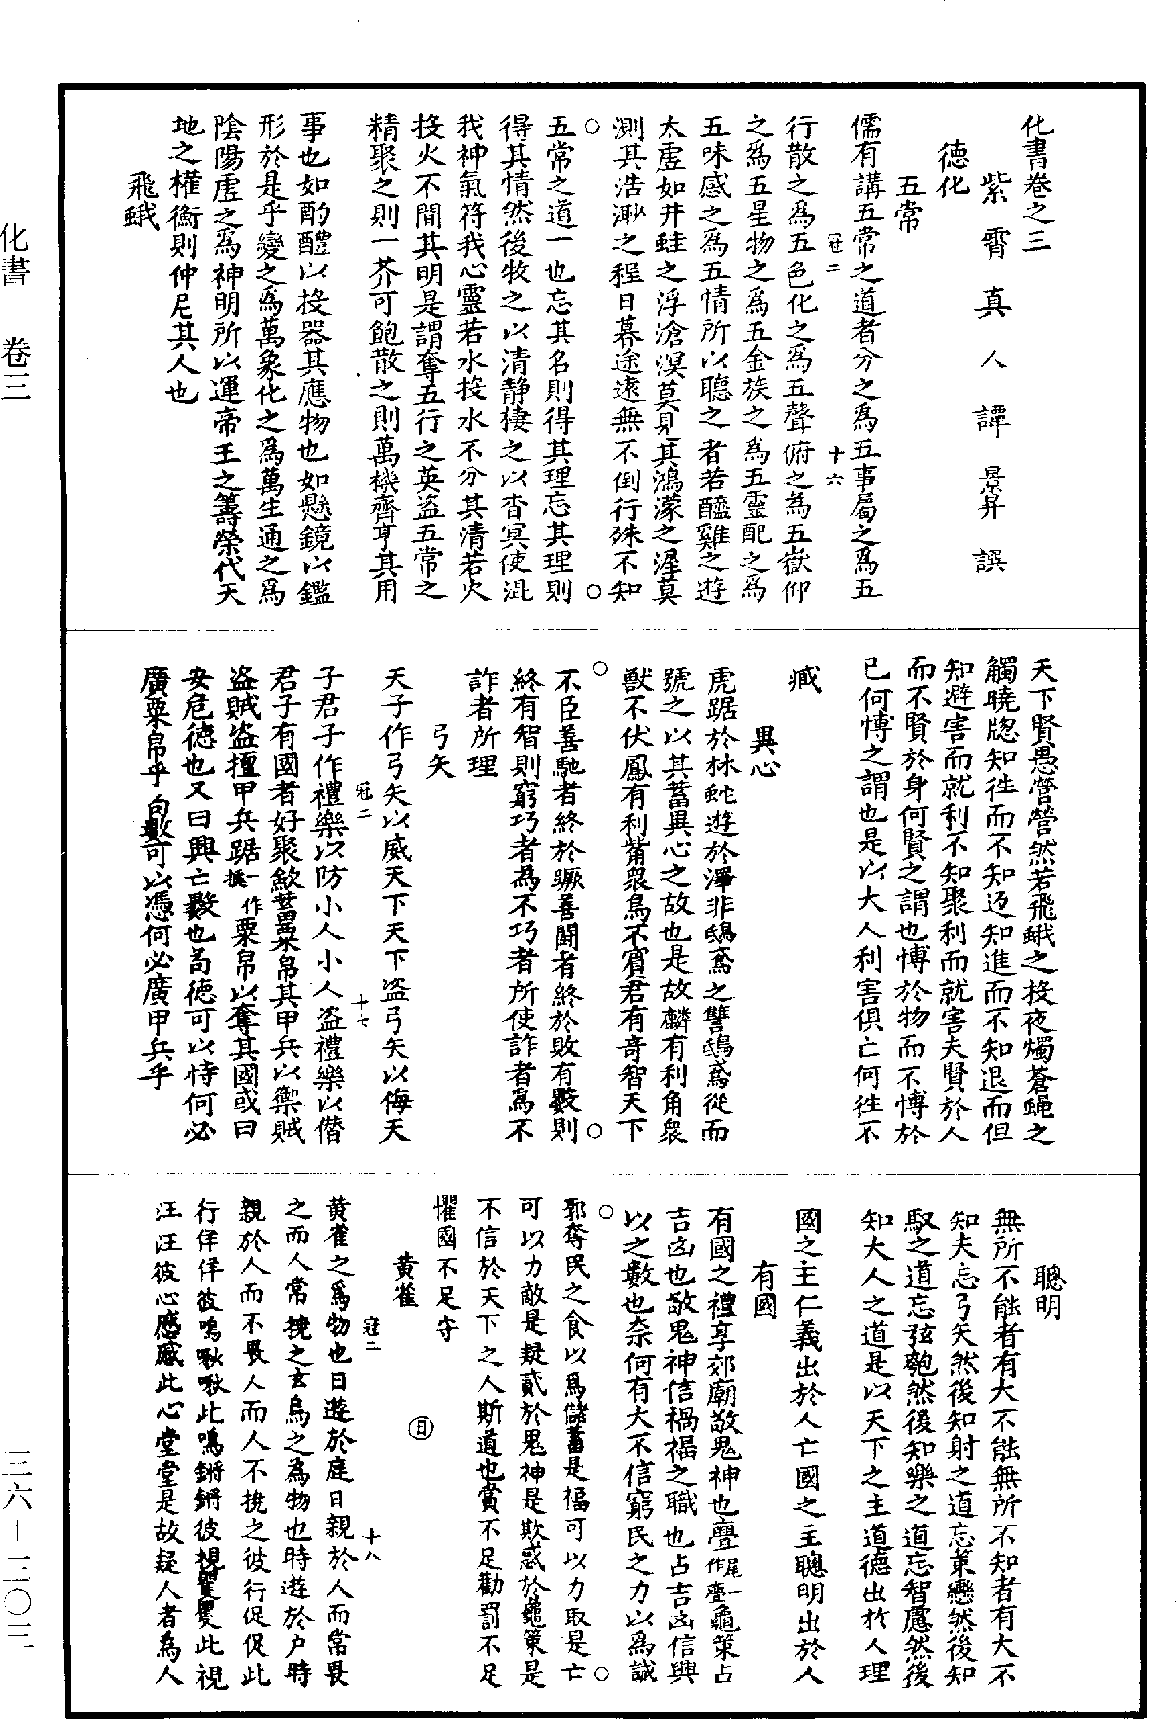 化書卷之三
紫霄真人譚景昇譔
德化
五常
儒有講五常之道者分之爲五事屬之爲五
行散之爲五色化之爲五聲俯之爲五嶽仰
之爲五星物之爲五金族之爲五靈配之爲
五味感之爲五情所以聽之者若醯雞之遊
太虛如井蛙之浮滄溟莫見其鴻濛之涯莫
測其浩渺之程日暮途遠無不倒行殊不知
五常之道一也忘其名則得其理忘其理則
得其情然後牧之以清靜棲之以杳冥使混
我神氣符我心靈若水投水不分其清若火
投火不間其明是謂奪五行之英盜五常之
精聚之則一芥可飽散之則萬機齊亨其用
事也如酌醴以投器其應物也如懸鏡以鑑
形於是乎變之爲萬象化之爲萬生通之爲
陰陽虛之爲神明所以運帝王之籌策代天
地之權衡則仲尼其人也
飛蛾
天下賢愚營營然若飛蛾之投夜燭蒼蠅之
觸曉牕知徃而不知迈知進而不知退而但
知避害而就利不知聚利而就害夫賢於人
而不賢於身何賢之謂也博於物而不博於
已何博之謂也是以大人利害俱亡何徃不
臧
異心
虎踞於林蛇遊於澤非鴟鳶之讐鴟鳶從而
號之以其蓄異心之故也是故麟有利角衆
獸不伏鳳有利觜衆鳥不賓君有奇智天下
不臣善馳者終於蹶善鬬者終於敗有數則
終有智則窮巧者為不巧者所使詐者爲不
詐者所理
弓矢
天子作弓矢以威天下天下盜弓矢以侮天
子君子作禮樂以防小人小人盜禮樂以僭
君子有國者好聚歛蓄粟帛具甲兵以禦賊
盜賊盜擅甲兵踞一作㩀粟帛以奪其國或曰
安危德也又曰興亡數也苟德可以恃何必
廣粟帛乎苟數可以憑何必廣甲兵乎
聰明
無所不能者有大不能無所不知者有大不
知夫忘弓矢然後知射之道忘策轡然後知
馭之道忘弦匏然後知樂之道忘智慮然後
知大人之道是以天下之主道德出於人理
國之主仁義出於人亡國之主聰明出於人
有國
有國之禮享郊廟敬鬼神也亹一作龜策占
吉凶也敬鬼神信禍福之職也占吉凶信興
以之數也奈何有大不信窮民之力以爲誠
郭奪民之食以爲儲蓄是福可以力取是亡
可以力敵是疑貳於鬼神是欺惑於龜策是
不信於天下之人斯道也賞不足勸罰不足
懼國不足守
黄雀
黄雀之爲物也日遊於庭日親於人而常畏
之而人常撓之玄鳥之為物也時遊於戶時
親於人而不畏人而人不撓之彼行促促此
行佯佯彼鳴啾啾此鳴鏘鏘彼視矍矍此視
汪汪彼心慼慼此心堂堂是故疑人者為人
冠二
十六
冠二
十七
冠二
十八
化書 卷三
三六－三〇二